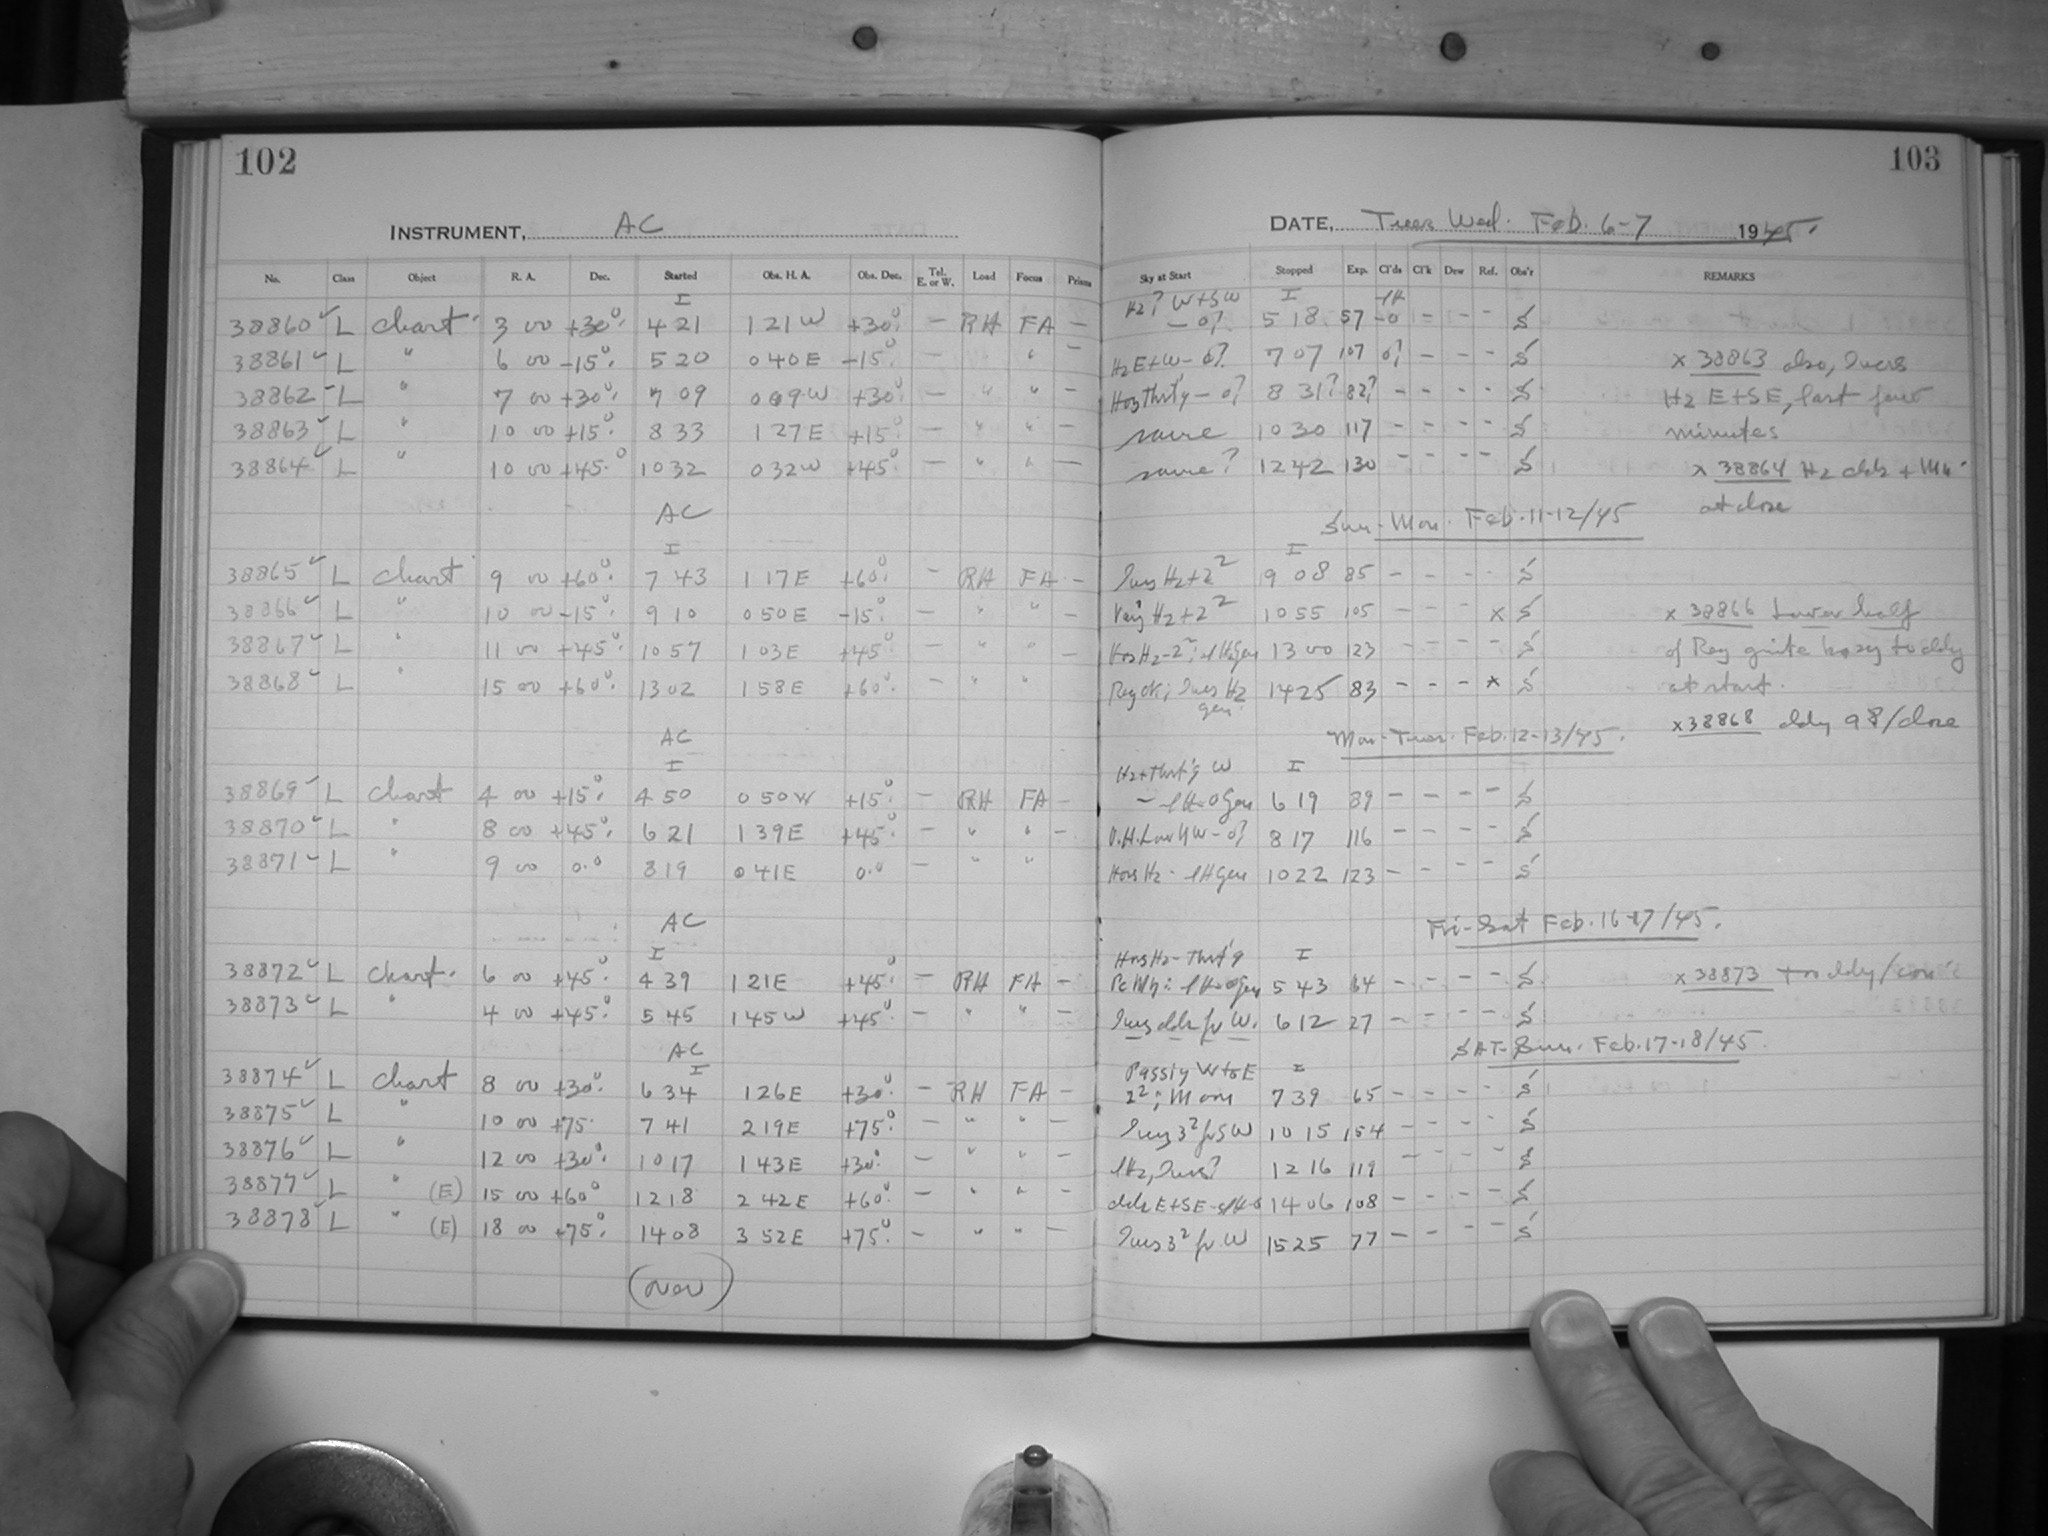 102
INSTRUMENT, AC
No. Class Object R. A. Dec. Started Obs. H. A. Obs. Dec. Tel. E. or W. Load Focus Prism
I
38860 ✓ L chart. 3 00 +30°. 4 21 1 21 W +30°. – RH FA –
38861 ✓ L " 6 00 –15°. 5 20 0 40 E –15°. – " –
38862 ✓ L " 7 00 +30°. 7 09 0 09 W +30°. – " " –
38863 ✓ L " 10 00 +15°. 8 33 1 27 E +15°. – " " –
38864 ✓ L " 10 00 +45.° 10 32 0 32 W +45°. – " " –
AC
I
38865 ✓ L chart 9 00 +60°. 7 43 1 17 E +60°. – RH FA –
38866 ✓ L " 10 00 –15°. 9 10 0 50 E –15°. – " " –
38867 ✓ L " 11 00 +45°. 10 57 1 03 E +45°. – " " –
38868 ✓ L " 15 00 +60°. 13 02 1 58 E +60°. – " "
AC
I
38869 ✓ L chart 4 00 +15°. 4 50 0 50 W +15°. – RH FA –
38870 ✓ L " 8 00 +45°. 6 21 1 39 E +45°. – " " –
38871 ✓ L " 9 00 0.° 8 19 0 41 E 0.° – " "
AC
I
38872 ✓ L chart. 6 00 +45°. 4 39 1 21 E +45°. – RH FA –
38873 ✓ L " 4 00 +45°. 5 45 1 45 W +45°. – " " –
AC
I
38874 ✓ L chart 8 00 +30°. 6 34 1 26 E +30°. – RH FA –
38875 ✓ L " 10 00 +75. 7 41 2 19 E +75°. – " " –
38876 ✓ L " 12 00 +30°. 10 17 1 43 E +30°. – " " –
38877 ✓ L " (E) 15 00 +60° 12 18 2 42 E +60°. – " " –
38878 ✓ L " (E) 18 00 +75°. 14 08 3 52 E +75°. – " " –
(over)
103
DATE, Tues Wed. Feb. 6-7 1945.
Sky at Start Stopped Exp. Cl'ds Cl'k Dew Ref. Obs'r REMARKS
Hz? W+SW I
– 0? 5 18 57 – – S
Hz E+W – 0? 7 07 107 0? – – – S × 38863 also,
– 0? 8 31? 82? – – – – S Hz E+SE, last few
same 10 30 117 – – – – S minutes
same? 12 42 130 – – – – S × 38864 Hz clds +
at close
Sun-Mon. Feb. 11-12/45
I
Hz+2² 9 08 85 – – – – S
Very Hz+2² 10 55 105 – – – × S × 38866 Lower half
13 00 123 – – – – S of Reg quite hazy to cldy
Reg ok; Hz gen. 14 25 83 – – – × S at start.
×38868 cldy 98/close
Mon-Tues. Feb. 12-13/45.
W I
6 19 89 – – – – S
Low NW – 0? 8 17 116 – – – – S
Hz 10 22 123 – – – – S
Fri-Sat Feb. 16-17/45.
I
5 43 64 – – – – S × 38873 too cldy/
clds fr W. 6 12 27 – – – – S
SAT-Sun. Feb. 17-18/45
Passig W to E I
2²; 7 39 65 – – – – S
3² fr SW 10 15 154 – – – – S
12 16 119 – – – – S
clds E+SE 14 06 108 – – – – S
3² fr W 15 25 77 – – – – S